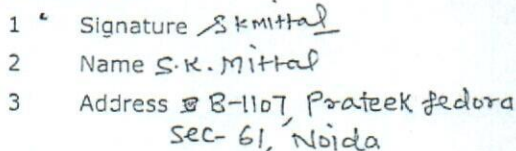 1 Signature SKMittal
2 Name S.K. Mittal
3 Address B-1107, Prateek fedora
Sec-61, Noida